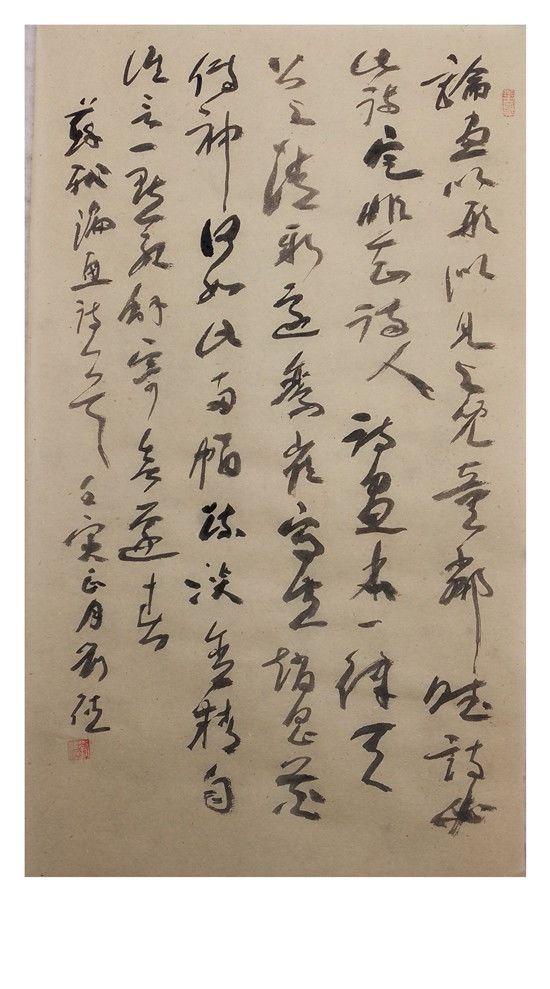 論畫以形似見与兒童鄰賦詩必
此詩定非知詩人詩畫本一律天
工与清新邊鸞雀寫生趙昌花
傳神何如此兩幅疏淡含精勻
誰言一點紅解寄無邊春
蘇軾論畫詩 壬寅正月